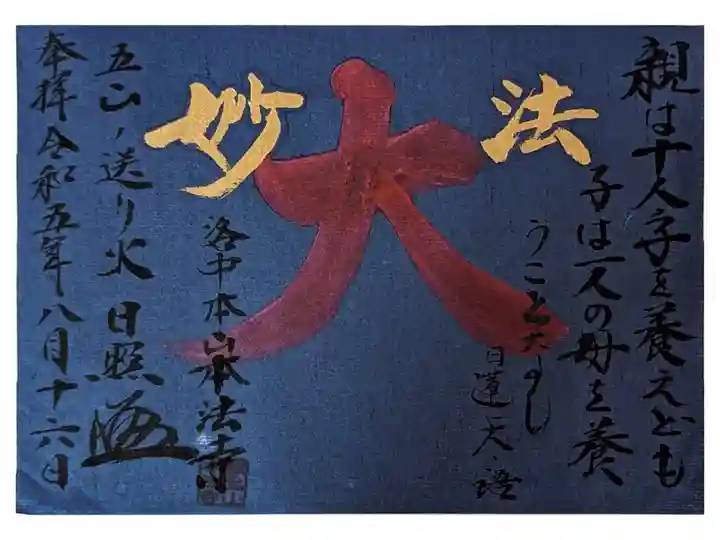 親は十人子を養えども
子は一人の母を養
うこと大事し
日蓮大
法
大
妙
洛中本山本法寺
五山ノ送り火 日照
奉拝令和五年八月十六日